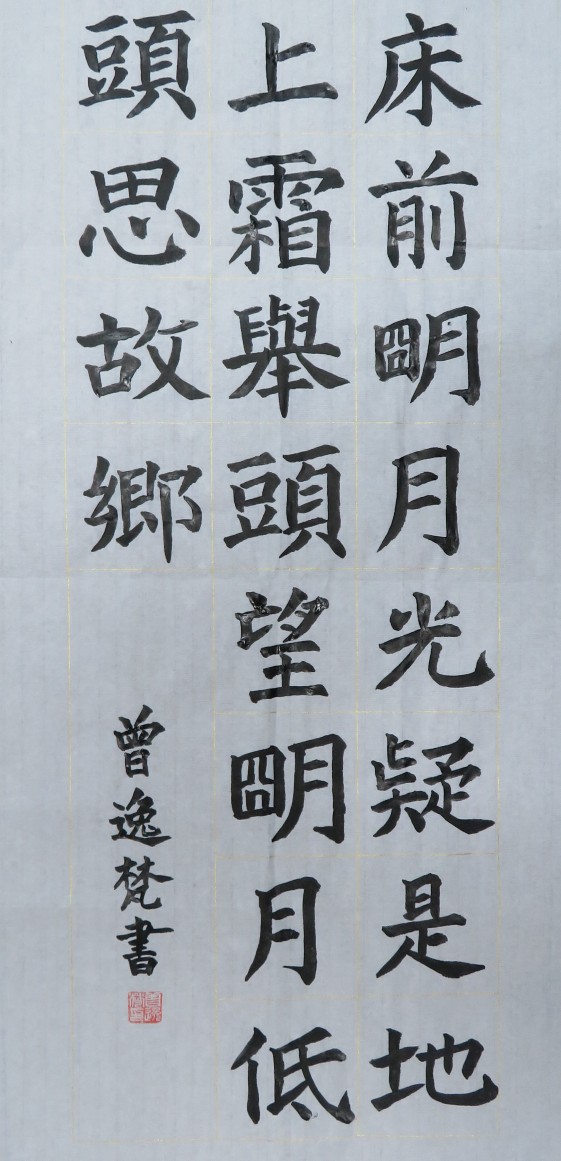 床前明月光疑是地
上霜舉頭望明月低
頭思故鄉
曾逸梵書